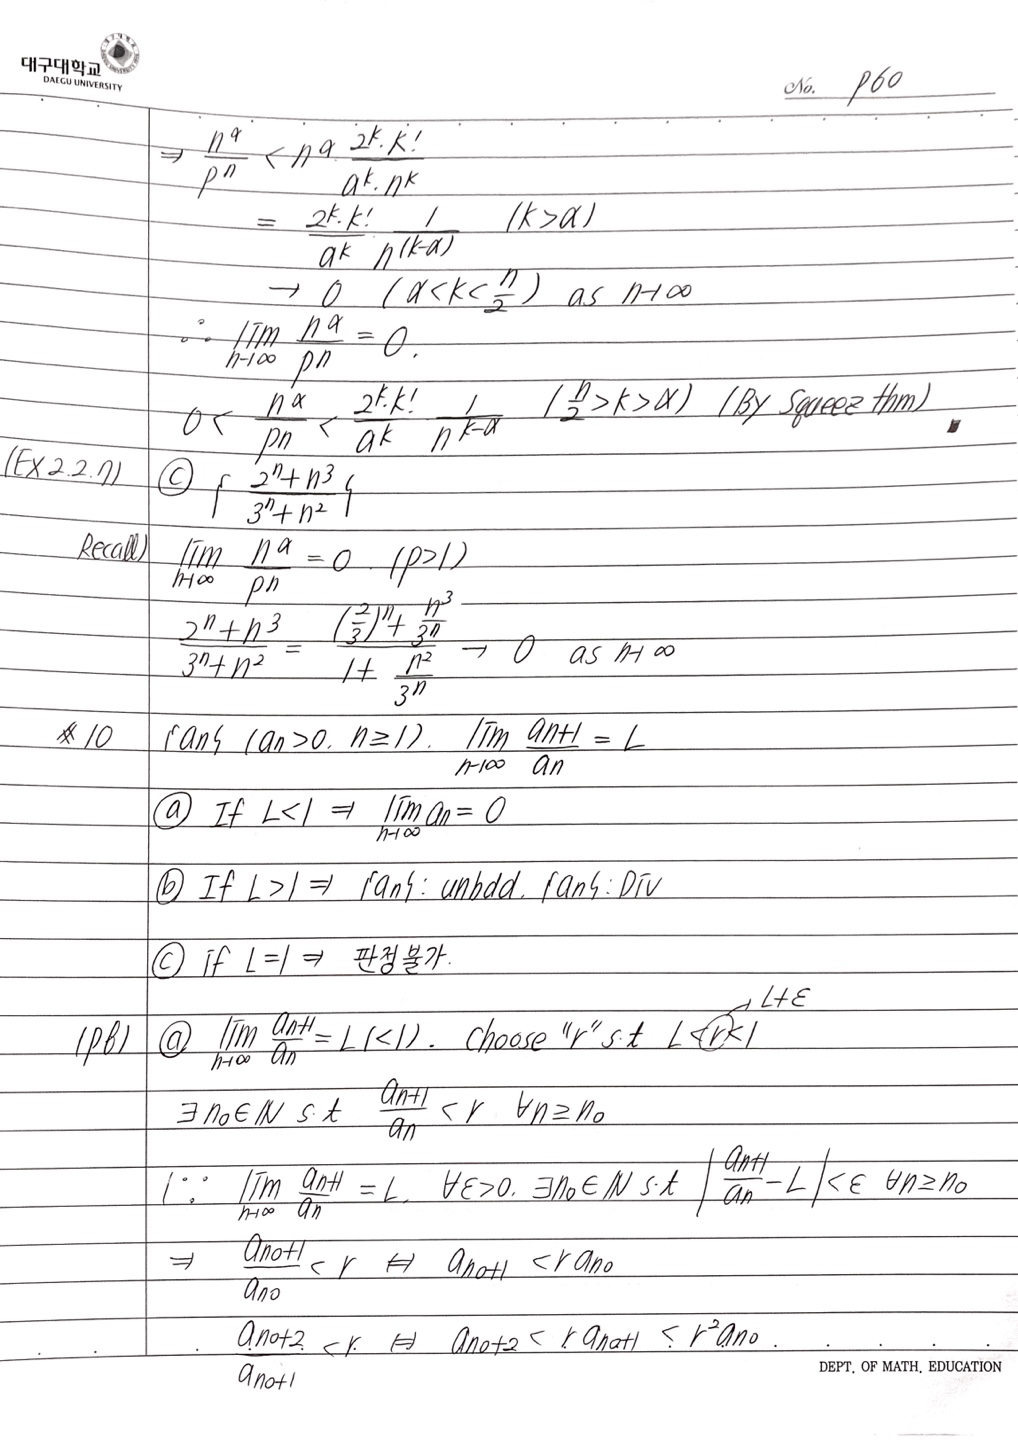 대구대학교
DAEGU UNIVERSITY
No. p60
⇒ n^α/p^n < n^α 2^k·k!/a^k·n^k
= 2^k·k!/a^k 1/n^(k-α) (k>α)
→ 0 (α<k<n/2) as n→∞
∴ lim_{n→∞} n^α/p^n = 0.
0 < n^α/p^n < 2^k·k!/a^k 1/n^{k-α} (n/2>k>α) (By Squeez thm)
(EX 2.2.7) ⓒ { 2^n+n^3/3^n+n^2 }
Recall) lim_{n→∞} n^α/p^n = 0 (p>1)
2^n+n^3/3^n+n^2 = (2/3)^n + n^3/3^n / 1 + n^2/3^n → 0 as n→∞
※10 {an} (an>0. n≥1). lim_{n→∞} a_{n+1}/a_n = L
ⓐ If L<1 ⇒ lim_{n→∞} an = 0
ⓑ If L>1 ⇒ {an}: unbdd. {an}: Div
ⓒ if L=1 ⇒ 판정불가.
L+ε
(pf) ⓐ lim_{n→∞} a_{n+1}/a_n = L(<1). Choose "r" s.t L<r<1
∃n_0∈N s.t a_{n+1}/a_n < r ∀n≥n_0
(∵ lim_{n→∞} a_{n+1}/a_n = L. ∀ε>0. ∃n_0∈N s.t |a_{n+1}/a_n - L|<ε ∀n≥n_0
⇒ a_{n_0+1}/a_{n_0} < r ⇔ a_{n_0+1} < r a_{n_0}
a_{n_0+2}/a_{n_0+1} < r. ⇔ a_{n_0+2} < r a_{n_0+1} < r^2 a_{n_0}.
DEPT. OF MATH. EDUCATION